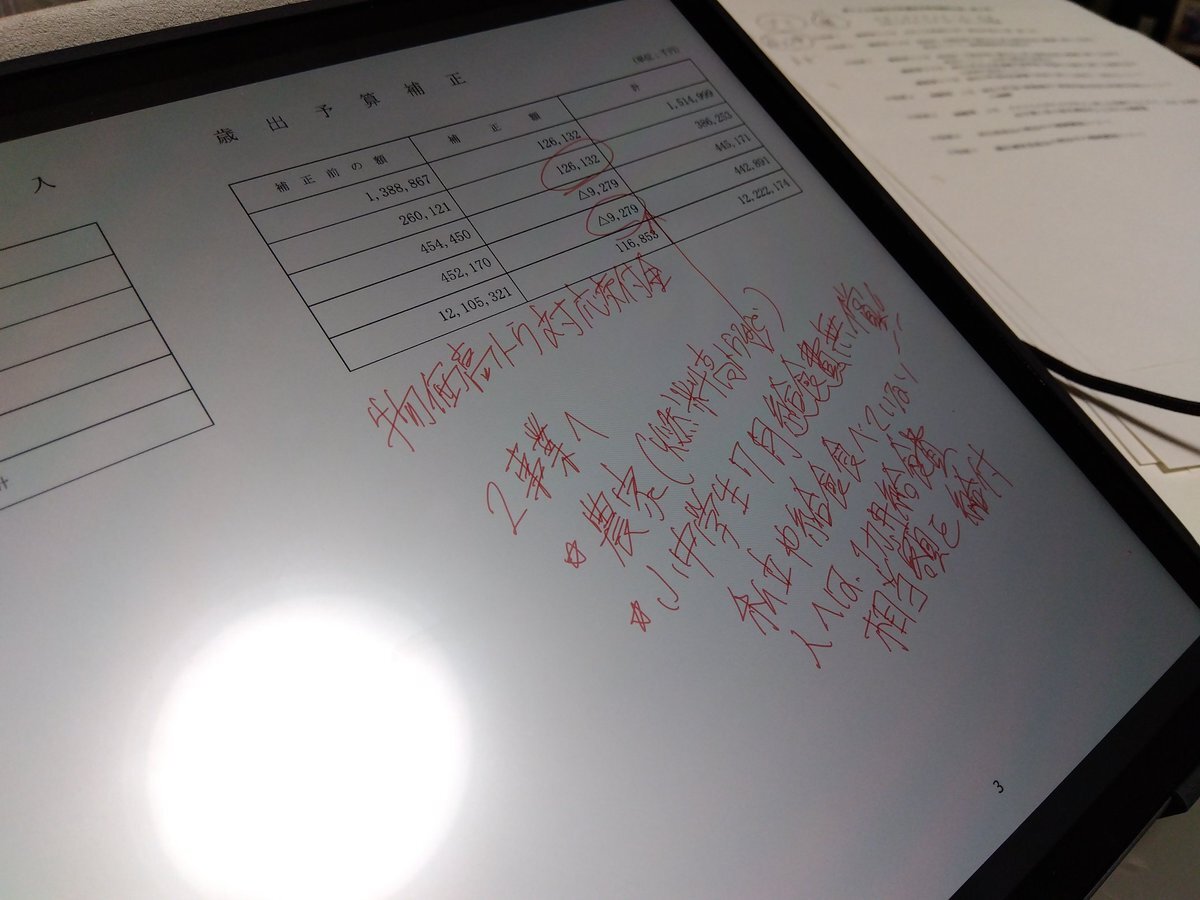 入
歳出予算補正
(単位：千円)
補正前の額 補正額 計
1,388,867 126,132 1,514,999
260,121 126,132 386,253
454,450 △9,279 445,171
452,170 △9,279 442,891
12,105,321 116,853 12,222,174
計
物価高トウ対応交付金
2事業へ
☆農家(燃料高対応など)
☆小中学生7月給食費無償!!
私立や給食食べていない
人へは、給食費
相当額を給付
3